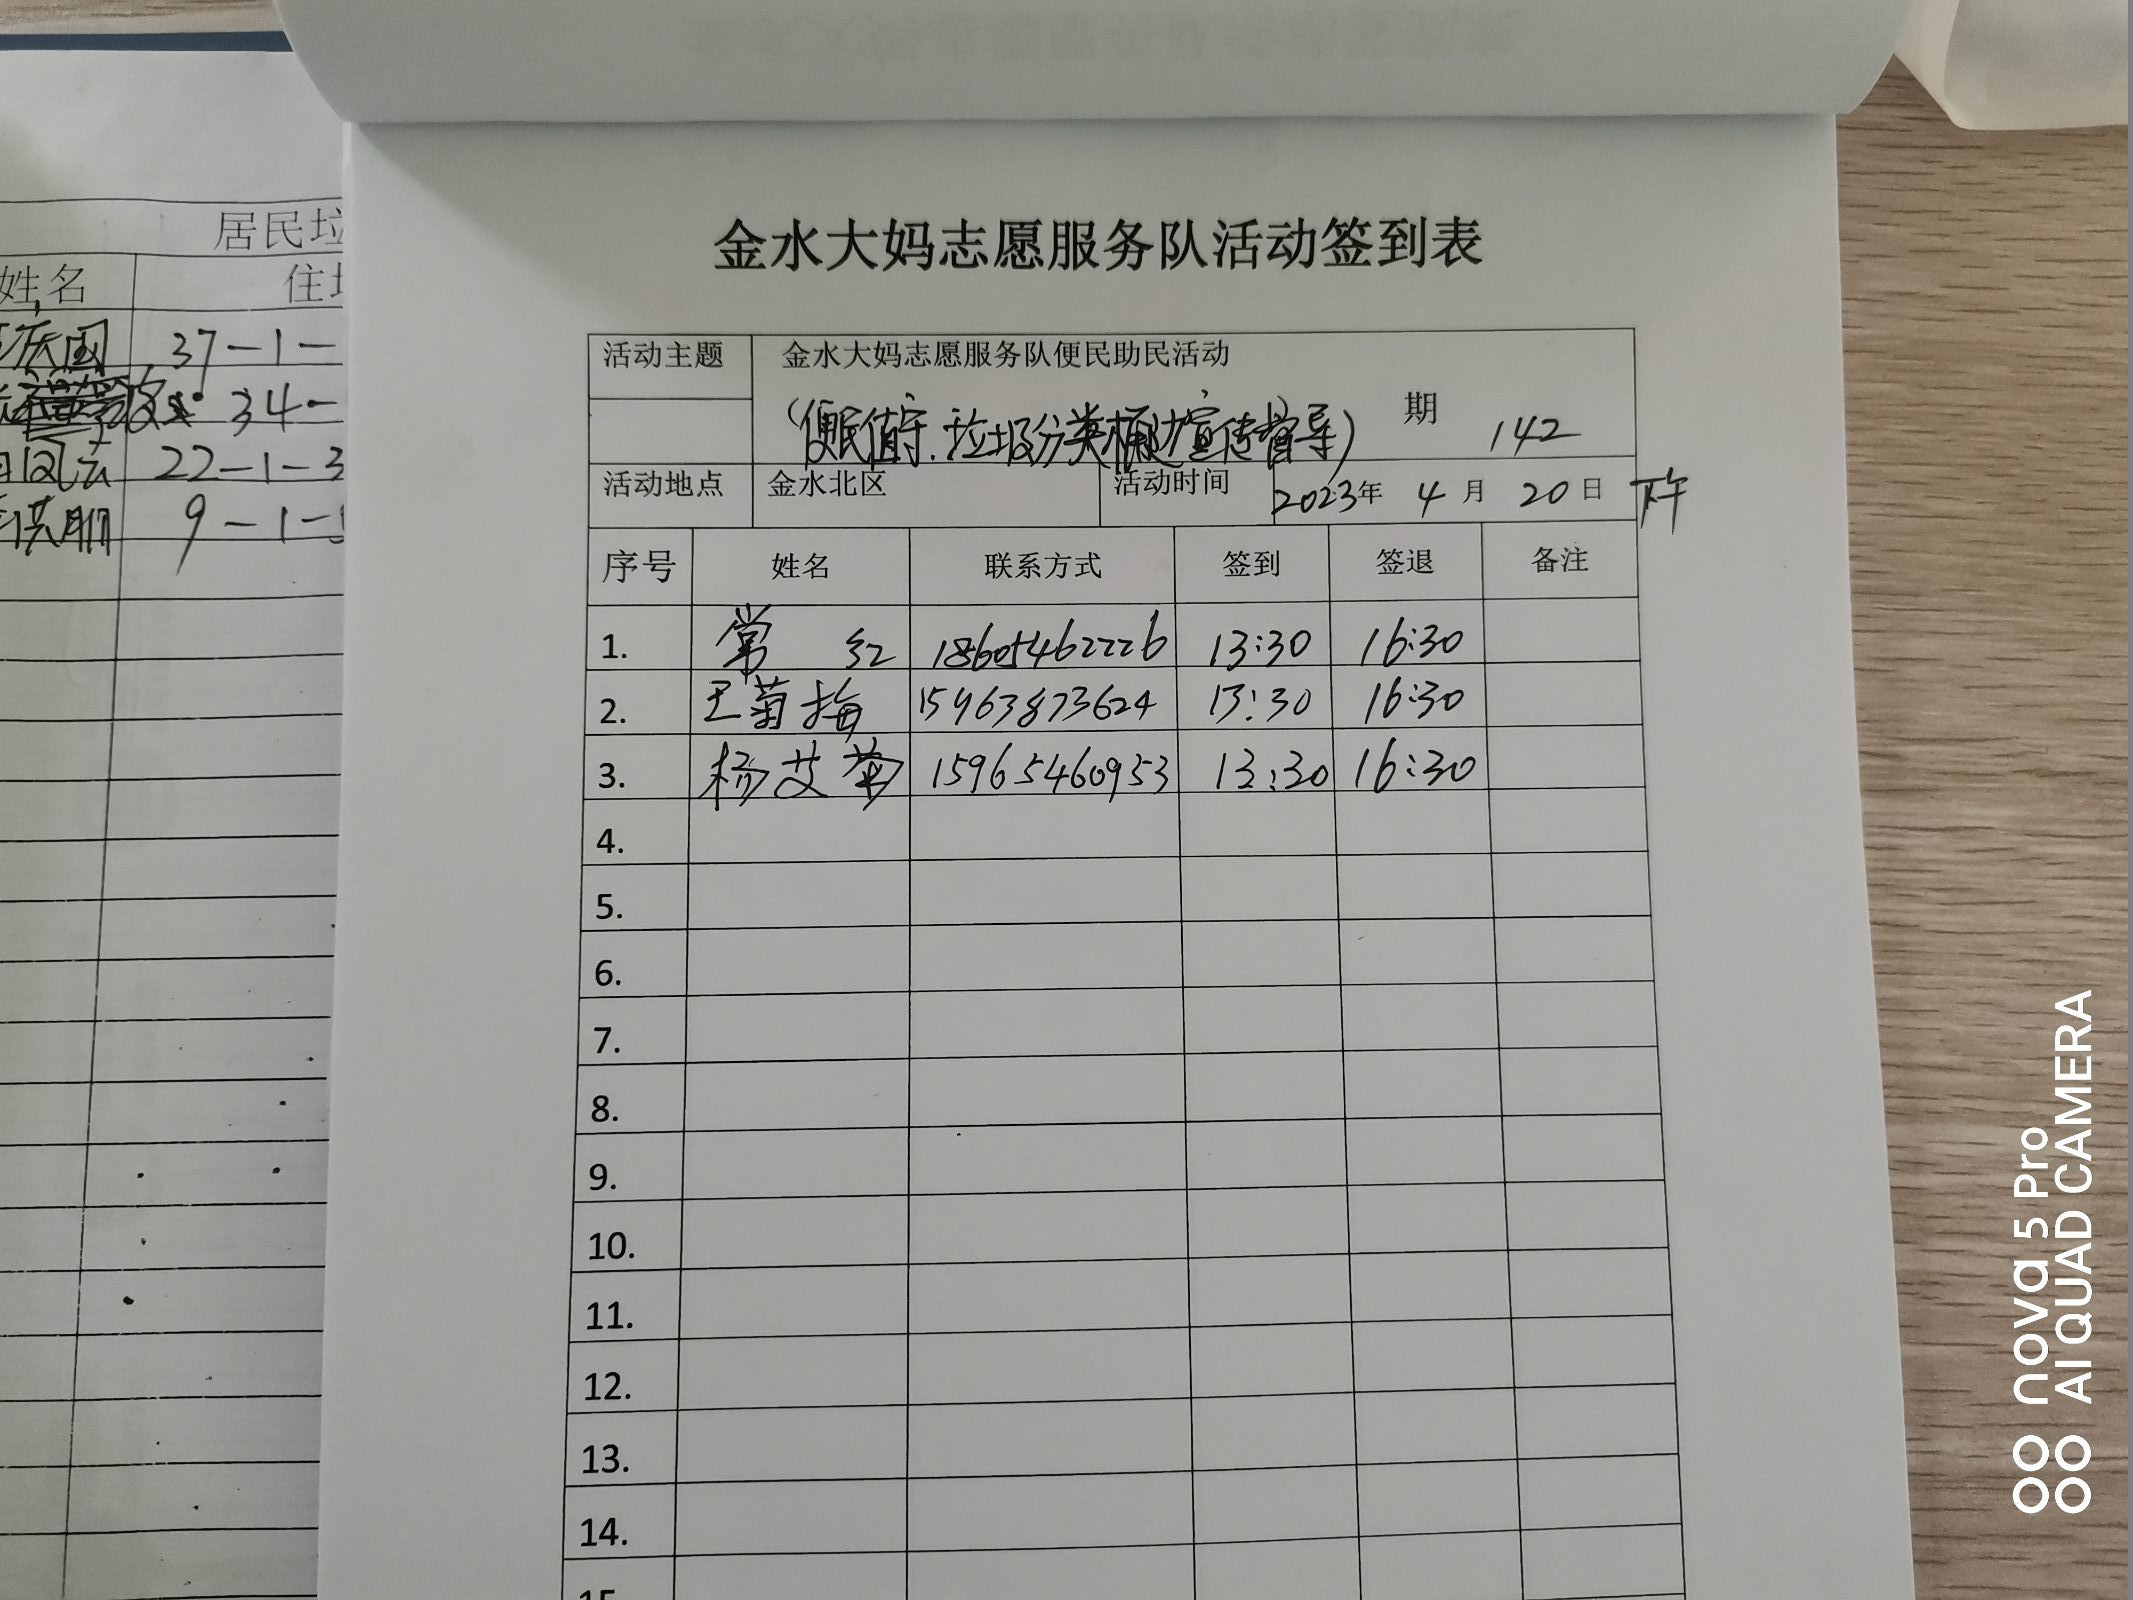 金水大妈志愿服务队活动签到表
活动主题 金水大妈志愿服务队便民助民活动
(便民值守.垃圾分类桶边宣传督导) 期 142
活动地点 金水北区 活动时间 2023年 4月 20日 下午
序号 姓名 联系方式 签到 签退 备注
1. 常红 18605462226 13:30 16:30
2. 王菊梅 15963873624 13:30 16:30
3. 杨艾菊 15965460953 13:30 16:30
4.
5.
6.
7.
8.
9.
10.
11.
12.
13.
14.
15.
居民垃
姓名 住址
庆国 37-1-
34-
22-1-3
9-1-
nova 5 Pro
AI QUAD CAMERA